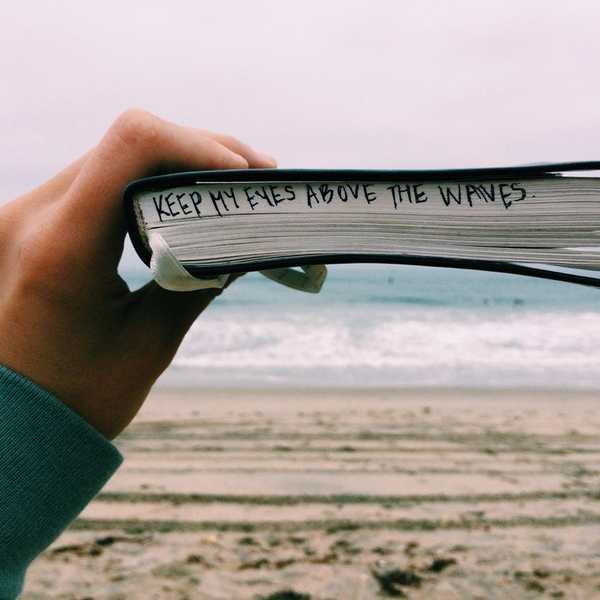 KEEP MY EYES ABOVE THE WAVES.